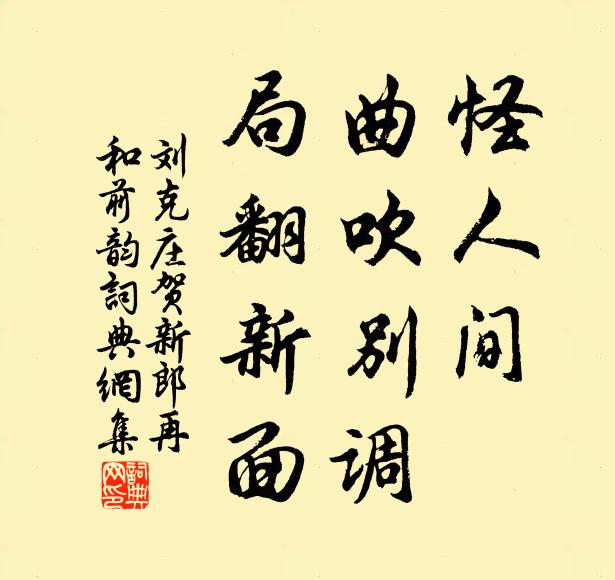 怪人间
曲吹别调
局翻新面
刘克庄贺新郎再
和前韵詞典網集
詞典网印